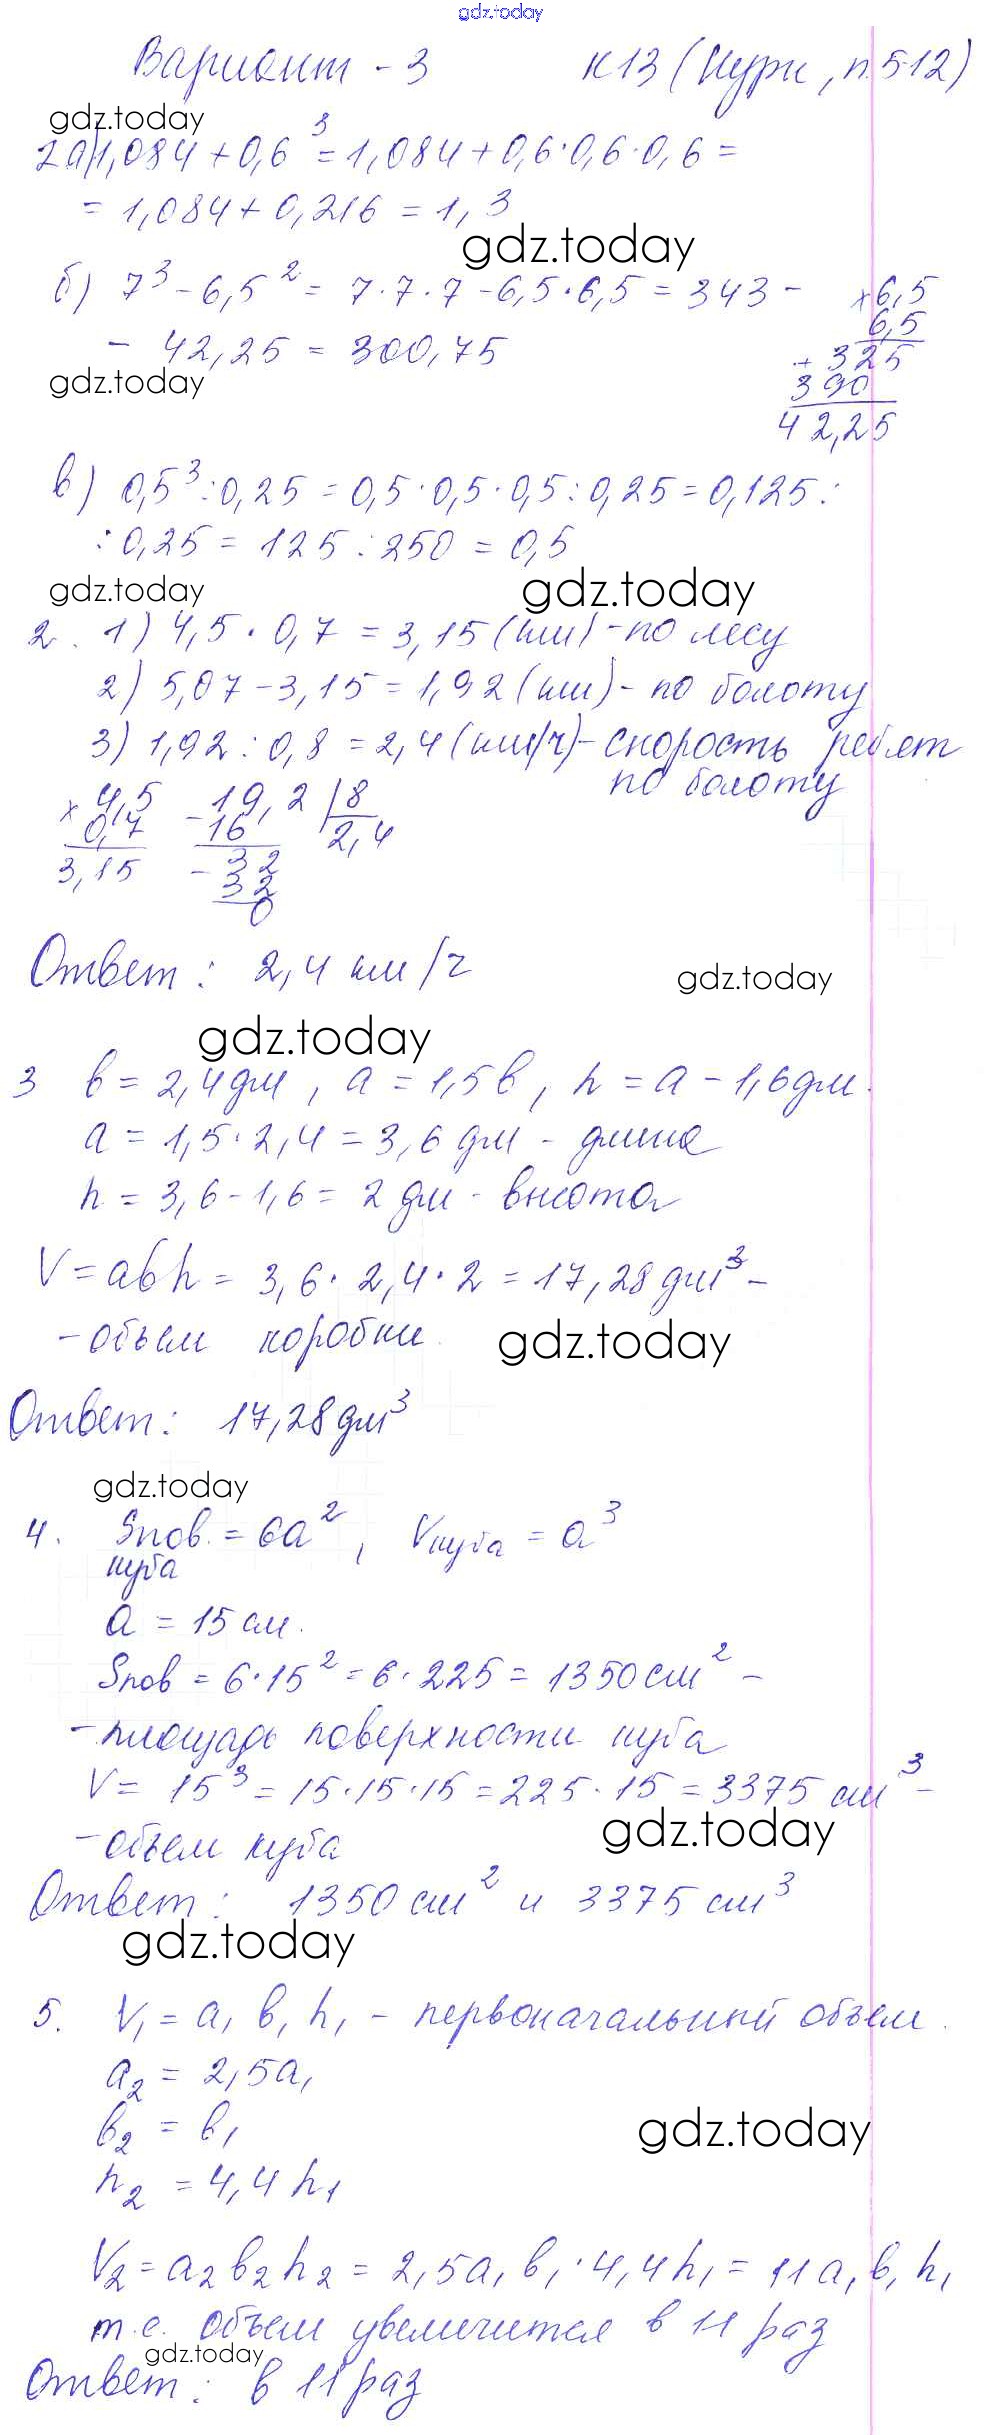 gdz.today
Вариант - 3 К13 (Нурк, п.5.12)
gdz.today
2а) 1,084 + 0,6³ = 1,084 + 0,6·0,6·0,6 =
= 1,084 + 0,216 = 1,3
gdz.today
б) 7³ - 6,5² = 7·7·7 - 6,5·6,5 = 343 -
- 42,25 = 300,75
× 6,5
6,5
+ 325
390
42,25
gdz.today
в) 0,5³ : 0,25 = 0,5·0,5·0,5 : 0,25 = 0,125 :
: 0,25 = 125 : 250 = 0,5
gdz.today gdz.today
2. 1) 4,5 · 0,7 = 3,15 (км) - по лесу
2) 5,07 - 3,15 = 1,92 (км) - по болоту
3) 1,92 : 0,8 = 2,4 (км/ч) - скорость ребят
по болоту
× 4,5
0,7
3,15
- 19,2 | 8
16 2,4
- 32
32
0
Ответ: 2,4 км/ч
gdz.today
gdz.today
3 b = 2,4 дм, a = 1,5b, h = a - 1,6 дм.
a = 1,5·2,4 = 3,6 дм - длина
h = 3,6 - 1,6 = 2 дм - высота
V = abh = 3,6 · 2,4 · 2 = 17,28 дм³ -
- объем коробки.
gdz.today
Ответ: 17,28 дм³
gdz.today
4. Sпов. куба = 6a², Vкуба = a³
a = 15 см.
Sпов = 6·15² = 6·225 = 1350 см² -
- площадь поверхности куба
V = 15³ = 15·15·15 = 225·15 = 3375 см³ -
gdz.today
- объем куба
Ответ: 1350 см² и 3375 см³
gdz.today
5. V₁ = a₁ b₁ h₁ - первоначальный объем.
a₂ = 2,5a₁
b₂ = b₁
gdz.today
h₂ = 4,4 h₁
V₂ = a₂ b₂ h₂ = 2,5a₁ b₁ · 4,4h₁ = 11 a₁ b₁ h₁
т.е. объем увеличится в 11 раз
gdz.today
Ответ: в 11 раз